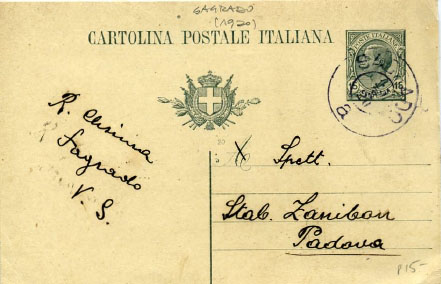 SAGRADO
(1920)
CARTOLINA POSTALE ITALIANA
POSTE ITALIANE
15
SAGRADO
R.
Sagrado
V. S.
Spett.
Stab. Zanibon
Padova
P15-